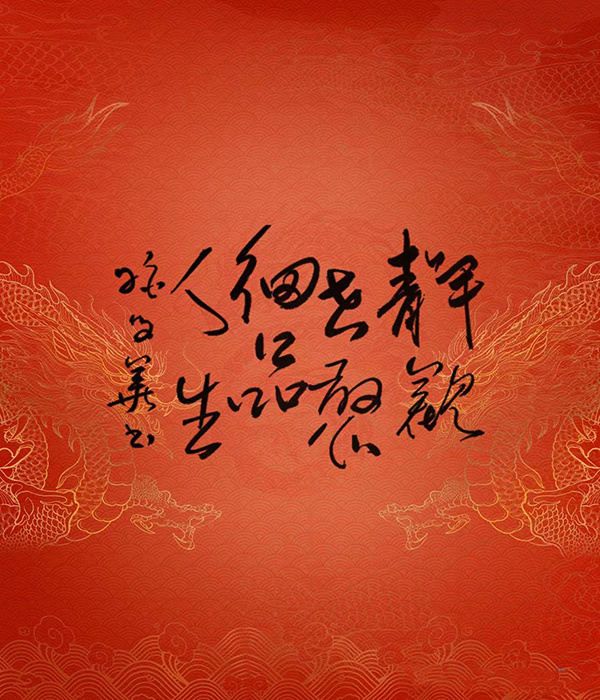 靜觀
世態
細品
人生
華书